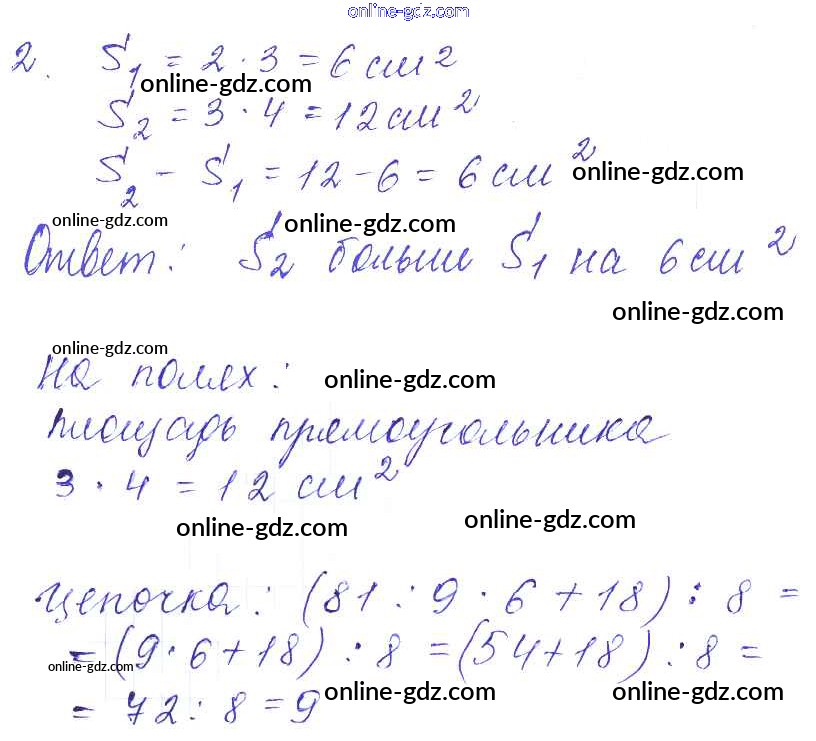 online-gdz.com
2. S₁ = 2 · 3 = 6 см²
online-gdz.com
S₂ = 3 · 4 = 12 см²
S₂ - S₁ = 12 - 6 = 6 см²
online-gdz.com
online-gdz.com
online-gdz.com
Ответ: S₂ больше S₁ на 6 см²
online-gdz.com
online-gdz.com
На полях:
online-gdz.com
площадь прямоугольника
3 · 4 = 12 см²
online-gdz.com
online-gdz.com
Цепочка: (81 : 9 · 6 + 18) : 8 =
= (9 · 6 + 18) : 8 = (54 + 18) : 8 =
online-gdz.com
= 72 : 8 = 9
online-gdz.com
online-gdz.com